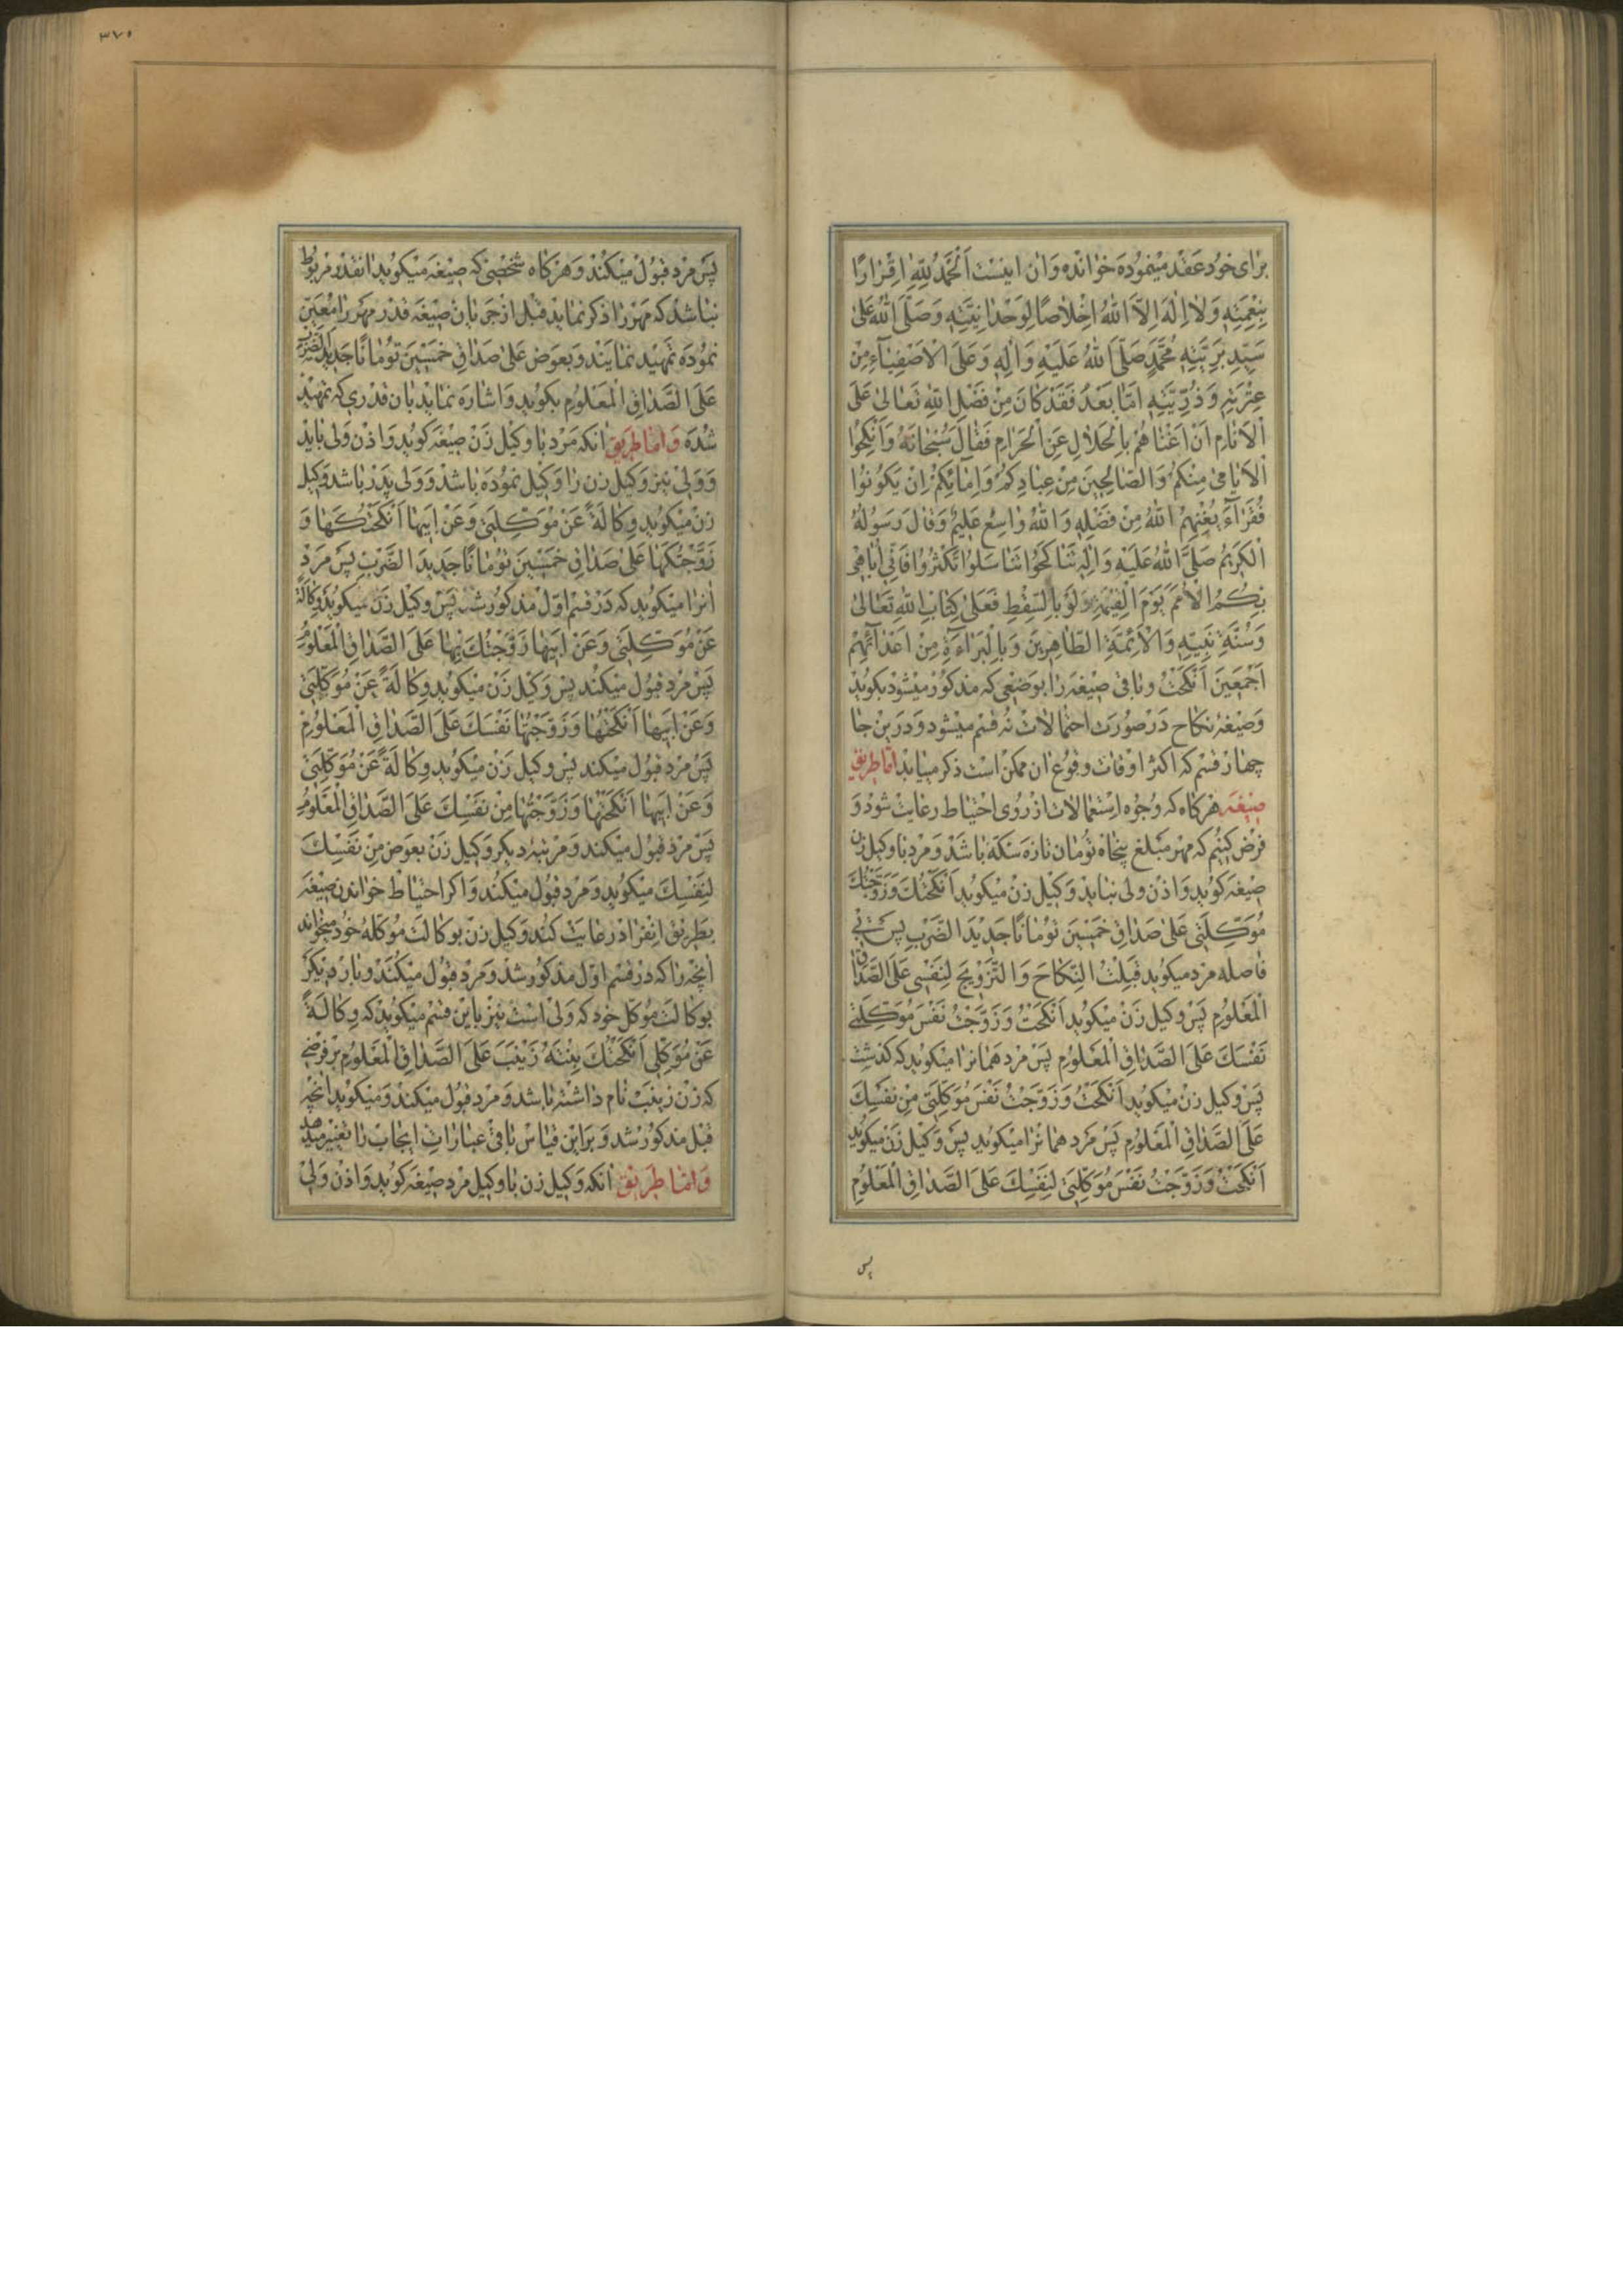 برای خود عقد مینموده خوانده وان اینست اَلْحَمْدُ لِلّٰهِ اِقْرارًا
بِنِعْمَتِهِ وَلا اِلٰهَ اِلَّا اللّٰهُ اِخْلاصًا لِوَحْدانِیَّتِهِ وَصَلَّی اللّٰهُ عَلیٰ
سَیِّدِ بَرِیَّتِهِ مُحَمَّدٍ صَلَّی اللّٰهُ عَلَیْهِ وَاٰلِهِ وَعَلَی الْاَصْفِیاۤءِ مِنْ
عِتْرَتِهِ وَذُرِّیَّتِهِ اَمّا بَعْدُ فَقَدْ کانَ مِنْ فَضْلِ اللّٰهِ تَعالیٰ عَلَی
الْاَنامِ اَنْ اَغْناهُمْ بِالْحَلالِ عَنِ الْحَرامِ فَقالَ سُبْحانَهُ وَاَنْکِحُوا
الْاَیامیٰ مِنْکُمْ وَالصّالِحینَ مِنْ عِبادِکُمْ وَاِماۤئِکُمْ اِنْ یَکُونُوا
فُقَراۤءَ یُغْنِهِمُ اللّٰهُ مِنْ فَضْلِهِ وَاللّٰهُ واسِعٌ عَلیمٌ وَقالَ رَسُولُهُ
الْکَریمُ صَلَّی اللّٰهُ عَلَیْهِ وَاٰلِهِ تَناکَحُوا تَناسَلُوا تَکْثُرُوا فَاِنّی اُباهی
بِکُمُ الْاُمَمَ یَوْمَ الْقِیٰمَةِ وَلَوْ بِالسِّقْطِ فَعَلیٰ کِتابِ اللّٰهِ تَعالیٰ
وَسُنَّةِ نَبِیِّهِ وَالْاَئِمَّةِ الطّاهِرینَ وَبِالْبَراۤءَةِ مِنْ اَعْداۤئِهِمْ
اَجْمَعینَ اَنْکَحْتُ وباقی صیغه را بوضعی که مذکور میشود بکوید
وصیغه نکاح در صورت احتمالات نه قسم میشود ودرین جا
چهار قسم که اکثر اوقات وقوع ان ممکن است ذکر مییابد اما طریق
صیغه هرکاه که وجوه استعمالات از روی احتیاط رعایت شود و
فرض کنیم که مهر مبلغ پنجاه تومان تازه سکه باشد ومرد با وکیل زن
صیغه کوید واذن ولی نباید وکیل زن میکوید اَنْکَحْتُکَ وَزَوَّجْتُکَ
مُوَکِّلَتی عَلیٰ صَداقِ خَمْسینَ تُومانًا جَدیدَ الضَّرْبِ پس بی
فاصله مرد میکوید قَبِلْتُ النِّکاحَ وَالتَّزْویجَ لِنَفْسی عَلَی الصَّداقِ
الْمَعْلُومِ پس وکیل زن میکوید اَنْکَحْتُ وَزَوَّجْتُ نَفْسَ مُوَکِّلَتی
نَفْسَکَ عَلَی الصَّداقِ الْمَعْلُومِ پس مرد همانرا میکوید که کذشت
پس وکیل زن میکوید اَنْکَحْتُ وَزَوَّجْتُ نَفْسَ مُوَکِّلَتی مِنْ نَفْسِکَ
عَلَی الصَّداقِ الْمَعْلُومِ پس مرد همانرا میکوید پس وکیل زن میکوید
اَنْکَحْتُ وَزَوَّجْتُ نَفْسَ مُوَکِّلَتی لِنَفْسِکَ عَلَی الصَّداقِ الْمَعْلُومِ
پس
۳۷۵
پس مرد قبول میکند وهرکاه شخصی که صیغه میکوید انقدر مربوط
نباشد که مهر را ذکر نماید قبل از جریان صیغه قدر مهر را معین
نموده تمهید نمایند وبعوض عَلیٰ صَداقِ خَمْسینَ تُومانًا جَدیدَ الضَّرْبِ
عَلَی الصَّداقِ الْمَعْلُومِ بکوید واشاره نماید بان قدری که تمهید
شده واما طریق انکه مرد با وکیل زن صیغه کوید واذن ولی باید
وولی نیز وکیل زن را وکیل نموده باشد وولی پدر باشد وکیل
زن میکوید وِکالَةً عَنْ مُوَکِّلَتی وَعَنْ اَبیها اَنْکَحْتُکَها وَ
زَوَّجْتُکَها عَلیٰ صَداقِ خَمْسینَ تُومانًا جَدیدَ الضَّرْبِ پس مرد
انرا میکوید که در قسم اول مذکور شد پس وکیل زن میکوید وِکالَةً
عَنْ مُوَکِّلَتی وَعَنْ اَبیها زَوَّجْتُکَ بِها عَلَی الصَّداقِ الْمَعْلُومِ
پس مرد قبول میکند پس وکیل زن میکوید وِکالَةً عَنْ مُوَکِّلَتی
وَعَنْ اَبیها اَنْکَحْتُها وَزَوَّجْتُها نَفْسَکَ عَلَی الصَّداقِ الْمَعْلُومِ
پس مرد قبول میکند پس وکیل زن میکوید وِکالَةً عَنْ مُوَکِّلَتی
وَعَنْ اَبیها اَنْکَحْتُها وَزَوَّجْتُها مِنْ نَفْسِکَ عَلَی الصَّداقِ الْمَعْلُومِ
پس مرد قبول میکند ومرتبه دیکر وکیل زن بعوض مِنْ نَفْسِکَ
لِنَفْسِکَ میکوید ومرد قبول میکند واکر احتیاط خواندن صیغه
بطریق انفراد رعایت کنند وکیل زن بوکالت موکله خود میخواند
انچه را که در قسم اول مذکور شد ومرد قبول میکند وبار دیکر
بوکالت موکل خود که ولی است نیز باین قسم میکوید که وِکالَةً
عَنْ مُوَکِّلی اَنْکَحْتُکَ بِنْتَهُ زَیْنَبَ عَلَی الصَّداقِ الْمَعْلُومِ بر فرضی
که زن زینب نام داشته باشد ومرد قبول میکند ومیکوید انچه
قبل مذکور شد وبراین قیاس باقی عبارات ایجاب را تغییر میدهد
واما طریق انکه وکیل زن با وکیل مرد صیغه کوید واذن ولی